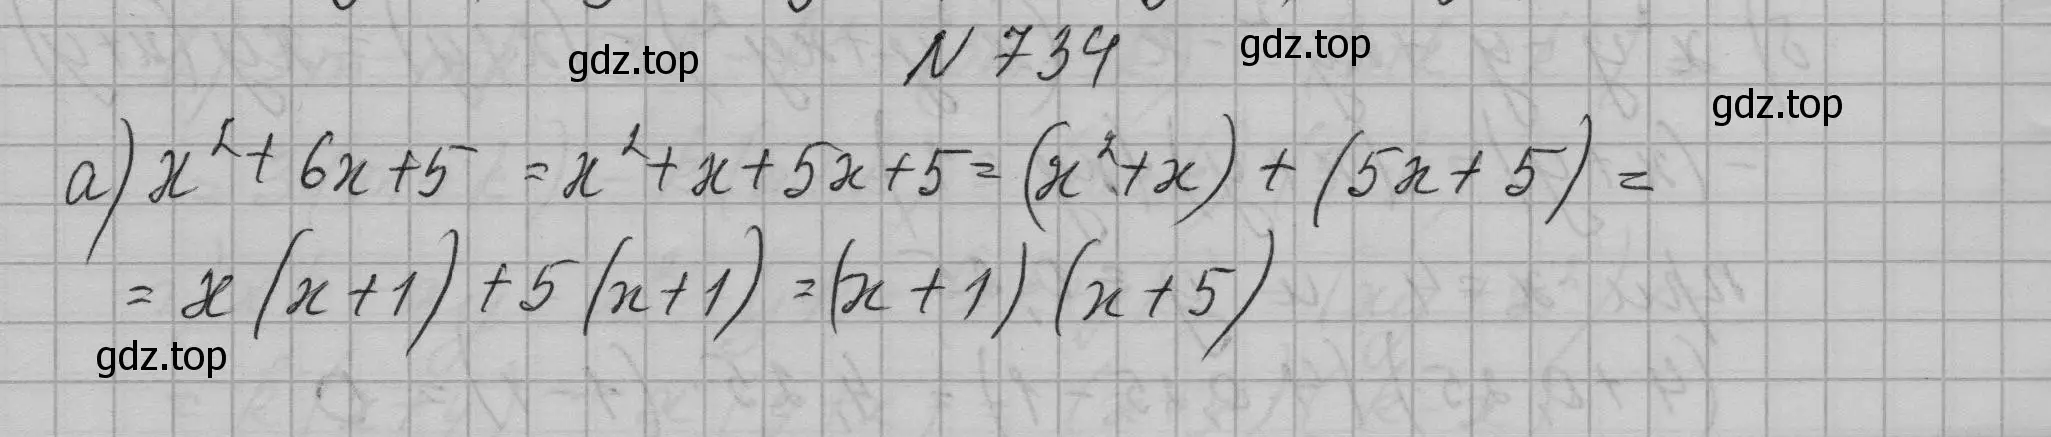 N 734
gdz.top
gdz.top
gdz.top
а) x² + 6x + 5 = x² + x + 5x + 5 = (x² + x) + (5x + 5) =
= x (x + 1) + 5 (x + 1) = (x + 1) (x + 5)
gdz.top